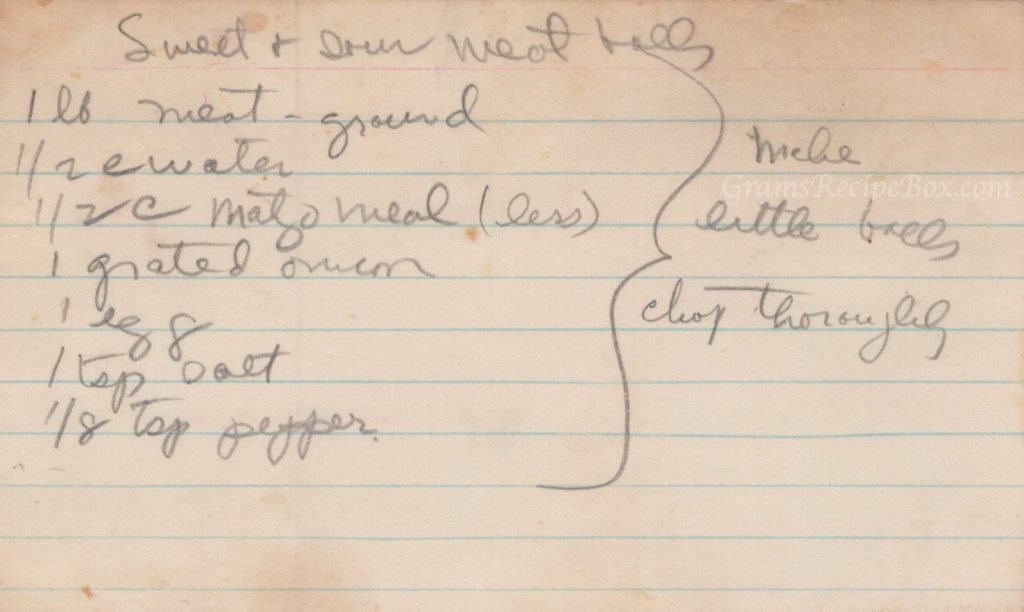 Sweet + sour meat balls
1 lb meat - ground
1/2 c water
1/2 c matzo meal (less)
1 grated onion
1 egg
1 tsp salt
1/8 tsp pepper.
make
little balls
chop thoroughly
GramsRecipeBox.com